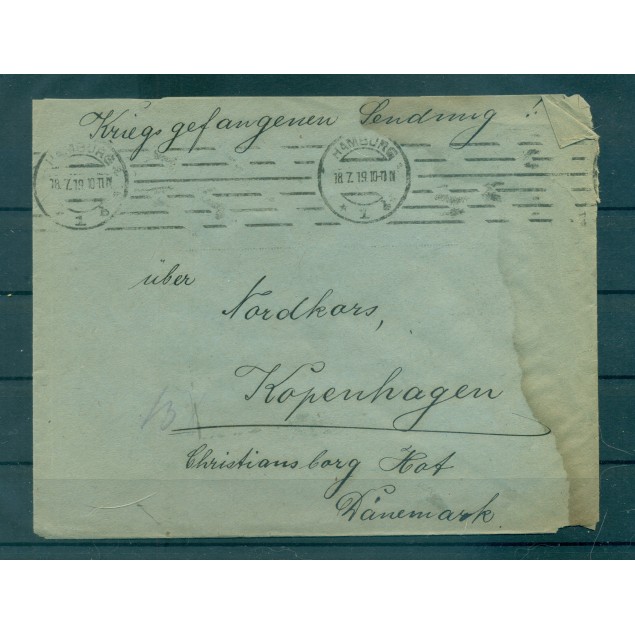 Kriegsgefangenen Sendung!!
HAMBURG
18.7.19.10-11 N
* 1 b
HAMBURG
18.7.19.10-11 N
* 1 b
über
Nordkors,
Kopenhagen
Christiansborg Hot
Dänemark